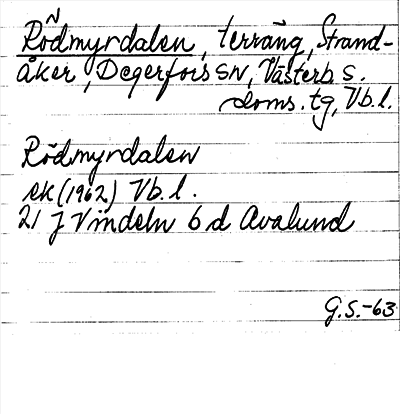 Rödmyrdalen, terräng, Strand-
åker, Degerfors sn, Västerb s.
doms. tg, Vb. l.
Rödmyrdalen
ek (1962) Vb. l.
21 J Vindeln 6 d Avalund
G.S.-63